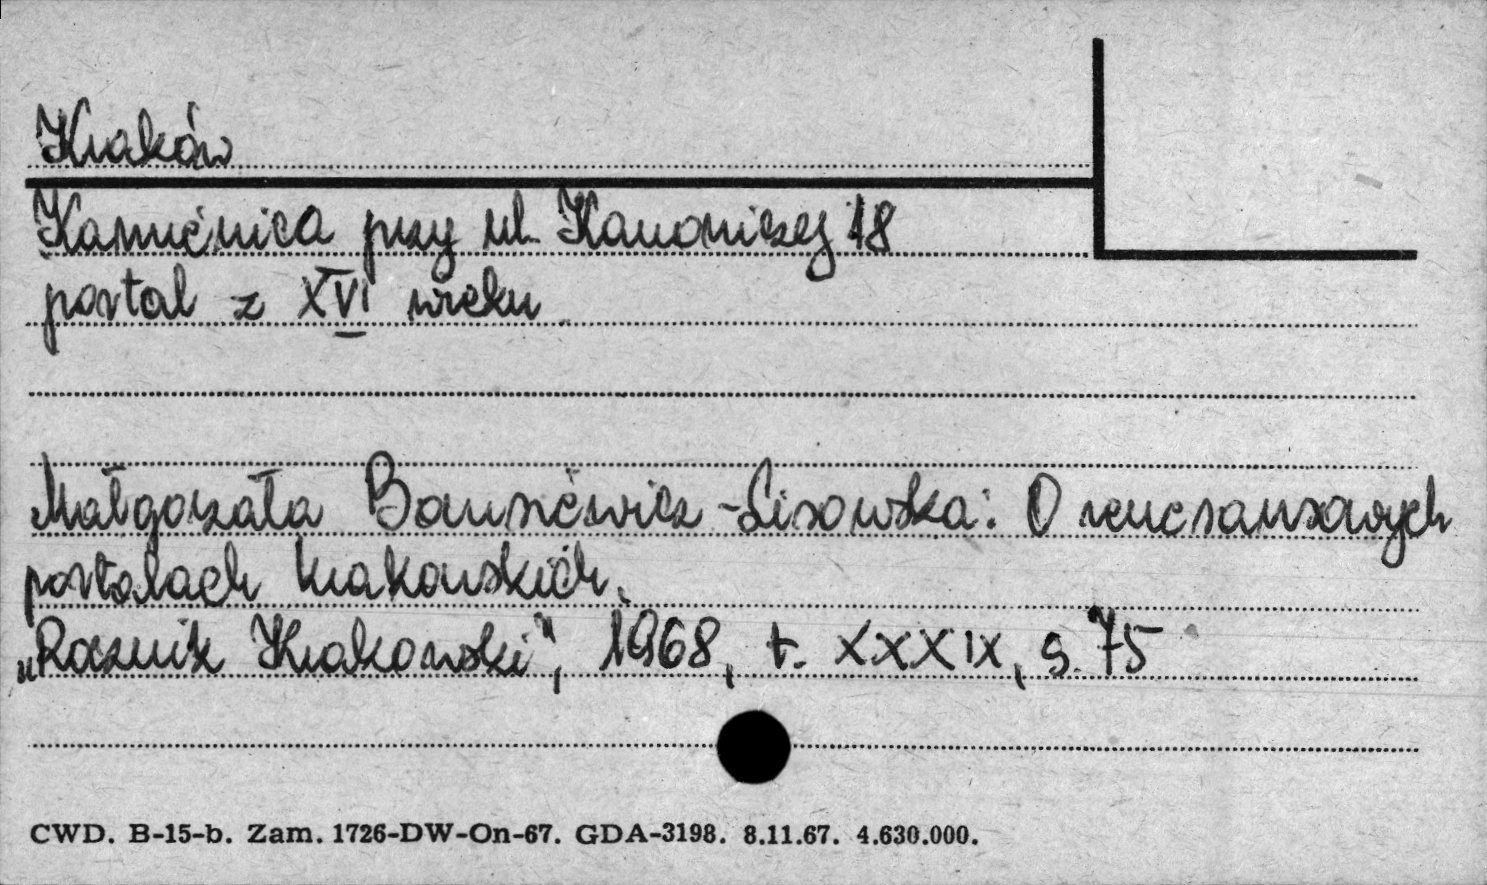 Kraków
Kamienica przy ul. Kanoniczej 18
portal z XVI wieku
Małgorzata Borusiewicz-Lisowska: O renesansowych
portalach krakowskich.
„Rocznik Krakowski", 1968, t. XXXIX, s. 75
CWD. B-15-b. Zam. 1726-DW-On-67. GDA-3198. 8.11.67. 4.630.000.